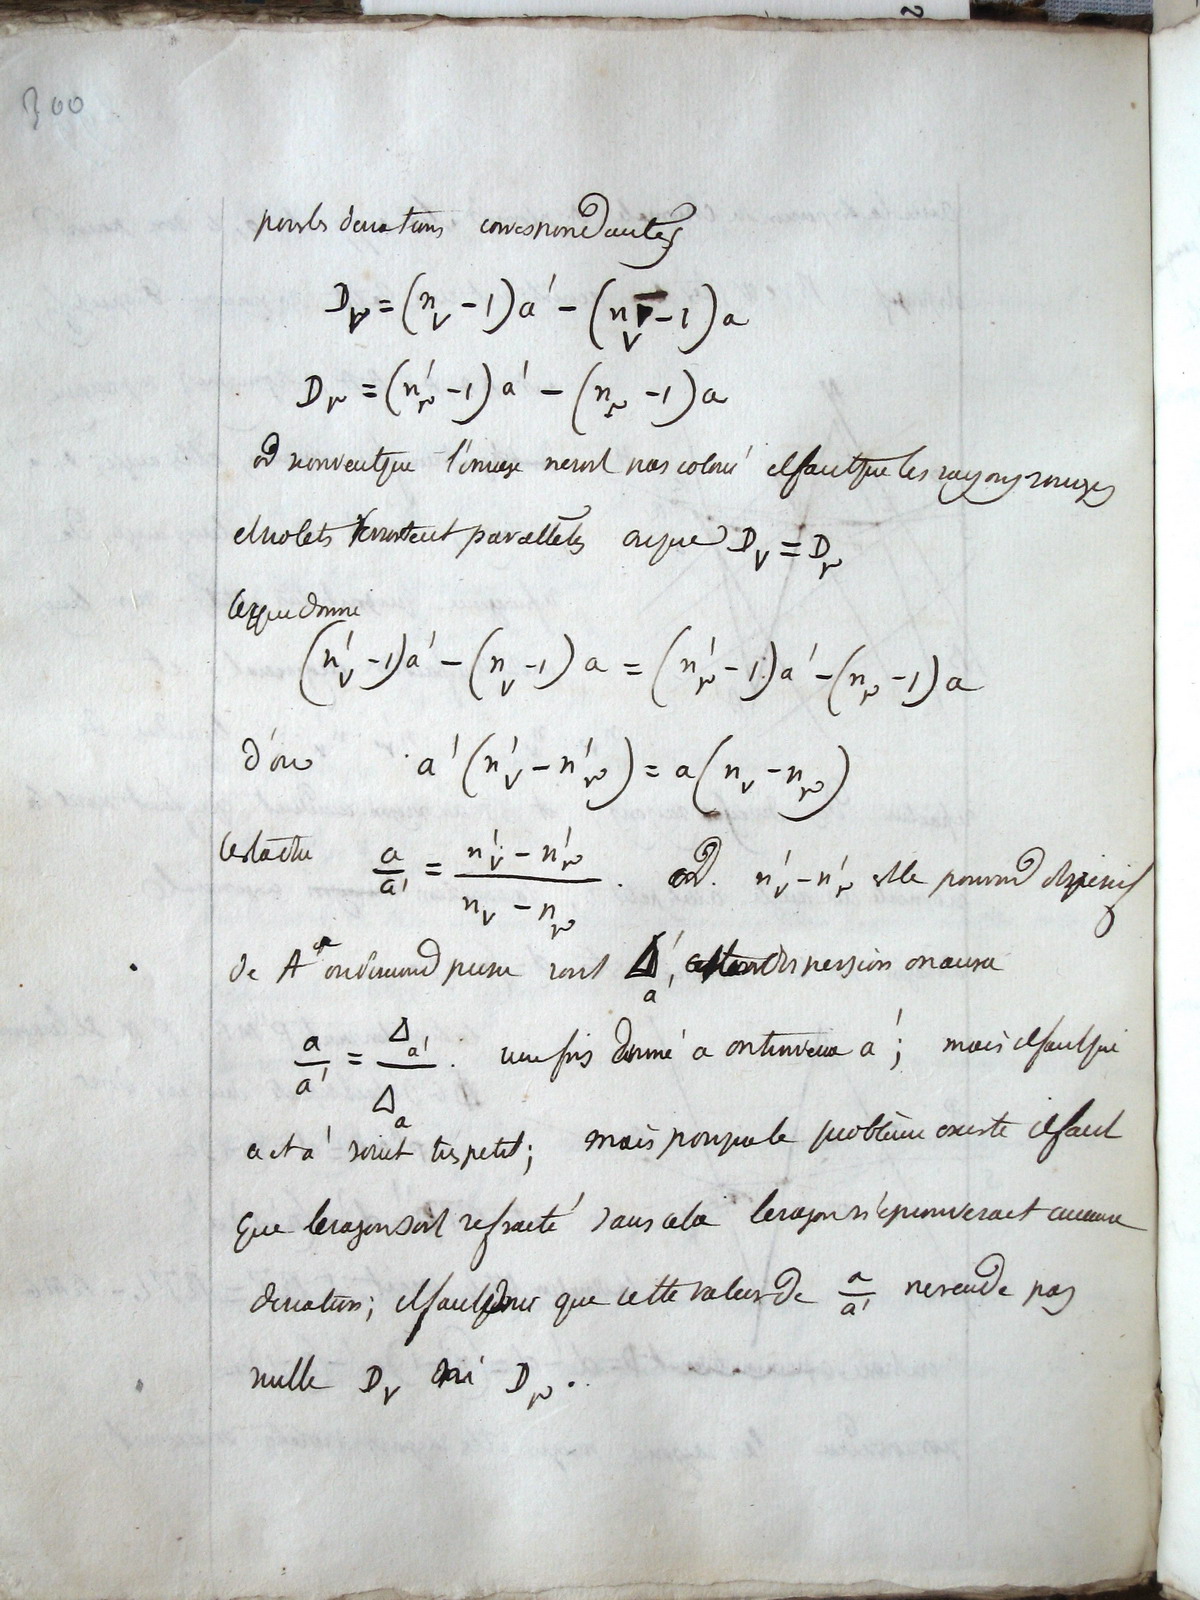 300
pour les deviations correspondantes
D_v = (n_v - 1) a' - (n_v - 1) a
D_r = (n'_r - 1) a' - (n_r - 1) a
or si on veut que l'image ne soit pas coloré il faut que les rayons rouges
et violets sortent parallèles ou que D_v = D_r
ce qui donne
(n'_v - 1) a' - (n_v - 1) a = (n'_r - 1) a' - (n_r - 1) a
d'où a' (n'_v - n'_r) = a (n_v - n_r)
c'est à dire a/a' = (n'_v - n'_r)/(n_v - n_r) . or n'_v - n'_r est le pouvoir dispersif
de A' du second prisme soit Δ_a', dispersion on aura
a/a' = Δ_a'/Δ_a . une fois donné a on trouvera a' ; mais il faut que
a et a' soient très petit ; mais pour que le problème existe il faut
que le rayon soit refracté sans cela le rayon n'éprouverait aucune
deviation ; il faut donc que cette valeur de a/a' ne rende pas
nulle D_v ni D_r .